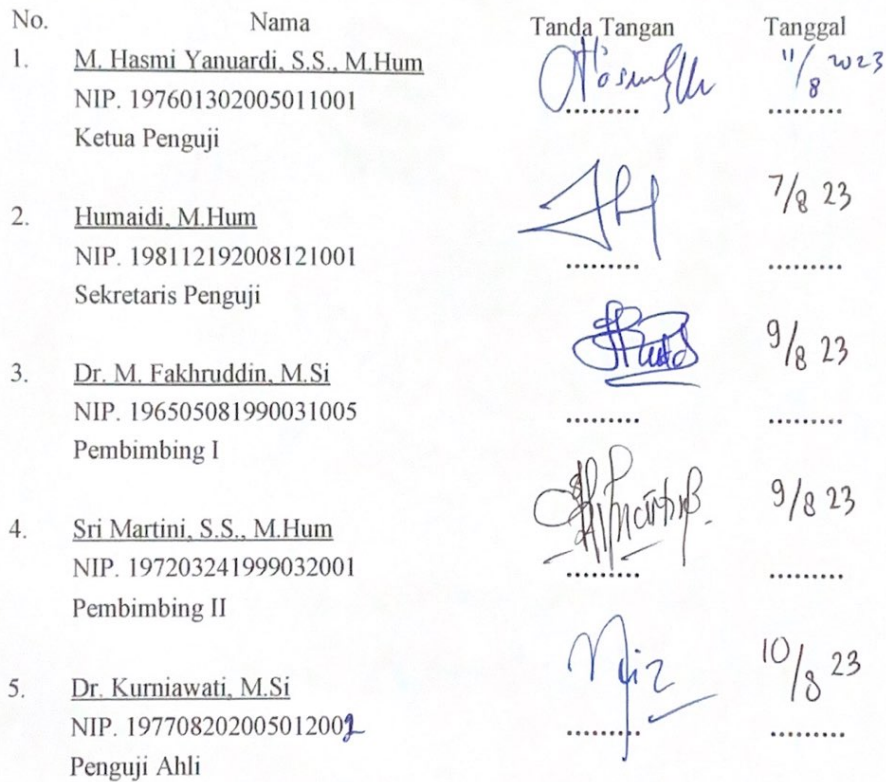 No. Nama Tanda Tangan Tanggal
1. M. Hasmi Yanuardi, S.S., M.Hum 11/8 2023
NIP. 197601302005011001 ......... .........
Ketua Penguji
2. Humaidi, M.Hum 7/8 23
NIP. 198112192008121001 ......... .........
Sekretaris Penguji
3. Dr. M. Fakhruddin, M.Si 9/8 23
NIP. 196505081990031005 ......... .........
Pembimbing I
4. Sri Martini, S.S., M.Hum 9/8 23
NIP. 197203241999032001 ......... .........
Pembimbing II
5. Dr. Kurniawati, M.Si 10/8 23
NIP. 197708202005012002 ......... .........
Penguji Ahli